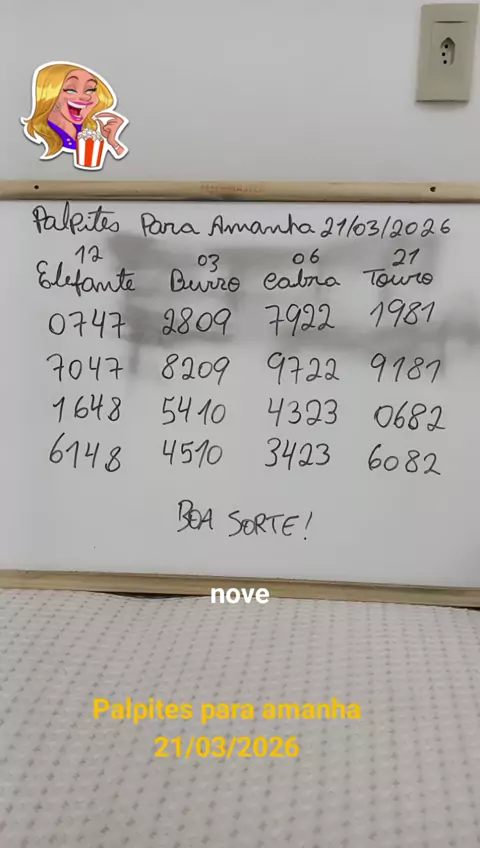 Palpites Para Amanha 21/03/2026
12 03 06 21
Elefante Burro Cabra Touro
0747 2809 7922 1981
7047 8209 9722 9181
1648 5410 4323 0682
6148 4510 3423 6082
BOA SORTE!
nove
Palpites para amanha
21/03/2026